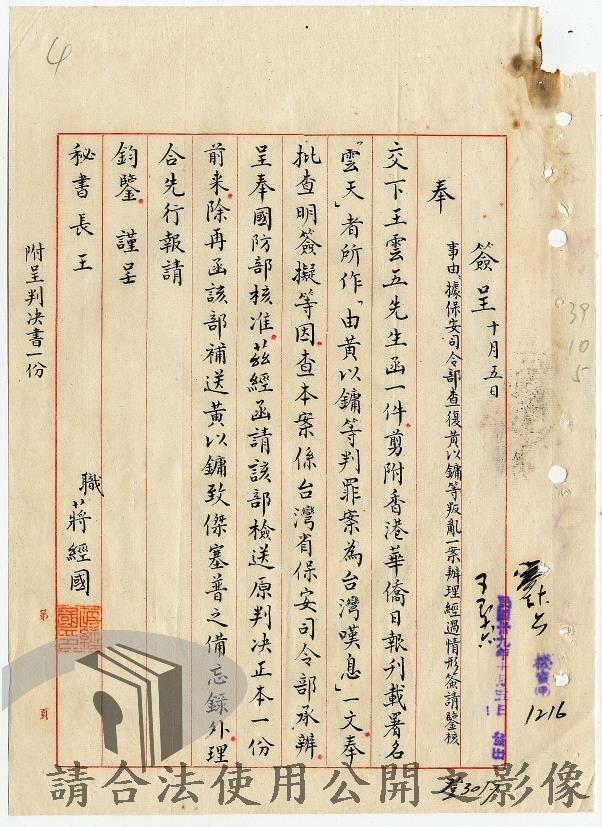 簽呈 十月五日
事由：據保安司令部查復黃以鏞等叛亂一案辦理經過情形簽請鑒核
奉
交下王雲五先生函一件剪附香港華僑日報刊載署名
「雲天」者所作「由黃以鏞等判罪案為台灣嘆息」一文奉
批查明簽擬等因查本案係台灣省保安司令部承辦
呈奉國防部核准茲經函請該部檢送原判決正本一份
前來除再函該部補送黃以鏞致傑塞普之備忘錄外理
合先行報請
鈞鑒 謹呈
秘書長王
職 蔣經國
附呈判決書一份
第 頁
39
10
5
4
1216
請合法使用公開之影像